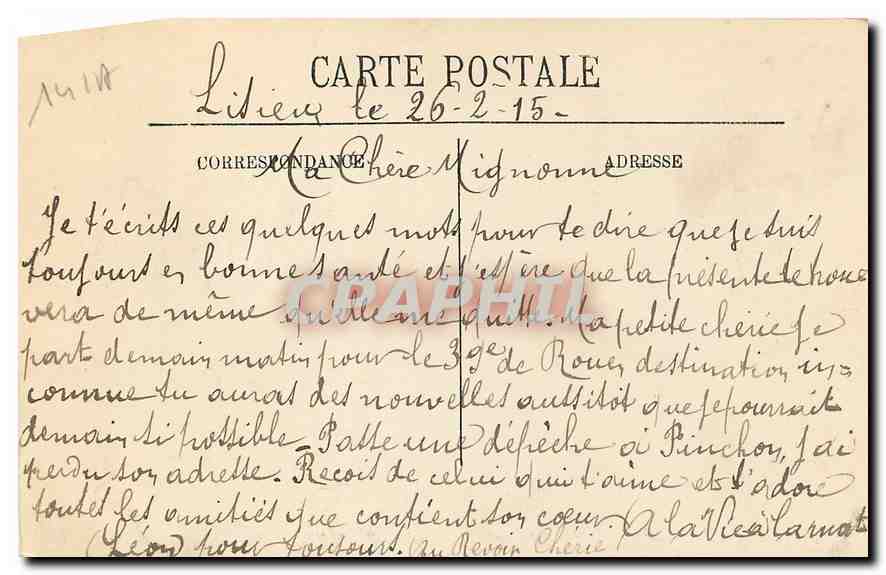 141A
CARTE POSTALE
Lisieux le 26-2-15-
CORRESPONDANCE
ADRESSE
Ma Chère Mignonne
Je t'écrits ces quelques mots pour te dire que je suis
toujours en bonne santé et j'espère que la présente te trouve
vera de même qu'elle me quitte. Ma petite cherie je
part demain matin pour le 39e de Rouen destination in=
connue tu auras des nouvelles aussitôt que je pourrait
demain si possible. Passe une dépèche à Pinchon, j'ai
perdu son adresse. Recois de celui qui t'aime et t'adore
toutes les amitiés que contient son cœur. (A la Vie à la mort
(Léon) pour toujours. (Au Revoir Chérie)
CRAPHIL